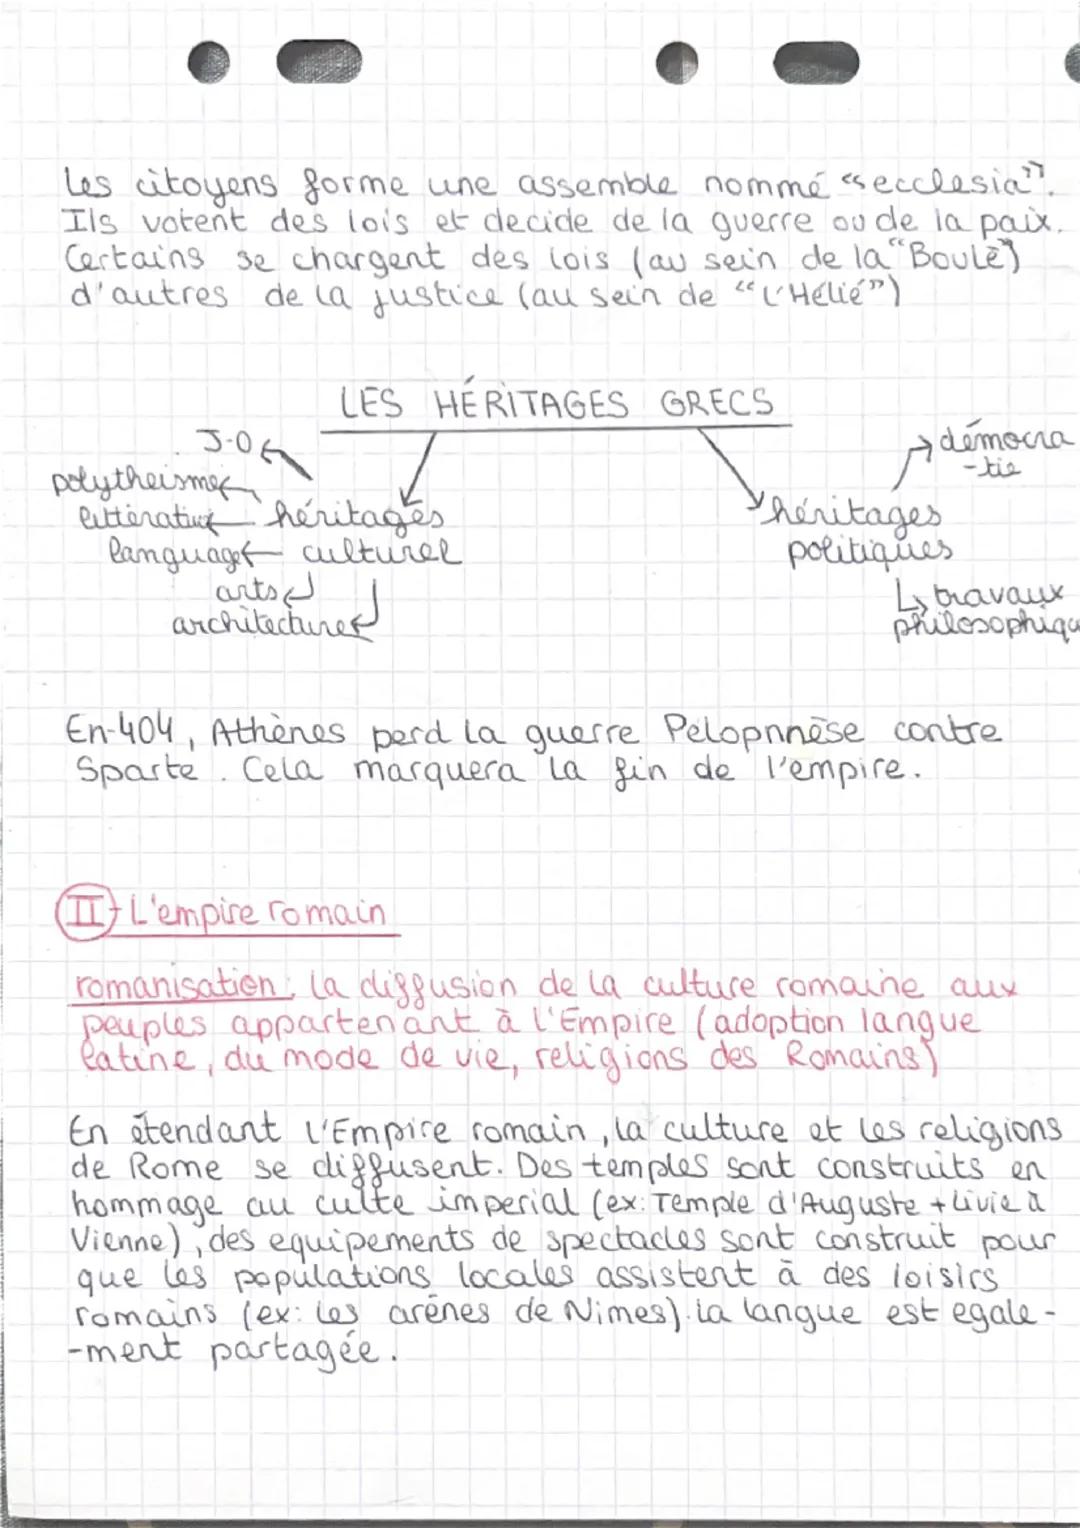 Les citoyens forme une assemble nommé "ecclesia".
Ils votent des lois et decide de la guerre ou de la paix.
Certains se chargent des lois (au sein de la "Boulè")
d'autres de la justice (au sein de "L'Hélié")
LES HÉRITAGES GRECS
J-O
polytheisme
littérature
language
arts
architecture
héritages
culturel
démocra
-tie
héritages
politiques
travaux
philosophiqu
En-404, Athènes perd la guerre Pelopnnèse contre
Sparte. Cela marquera la fin de l'empire.
II- L'empire romain
romanisation: la diffusion de la culture romaine aux
peuples appartenant à l'Empire (adoption langue
latine, du mode de vie, religions des Romains)
En étendant l'Empire romain, la culture et les religions
de Rome se diffusent. Des temples sont construits en
hommage au culte imperial (ex: Temple d'Auguste + Livie à
Vienne), des equipements de spectacles sont construit pour
que les populations locales assistent à des loisirs
romains (ex: les arènes de Nimes). La langue est egale-
-ment partagée.